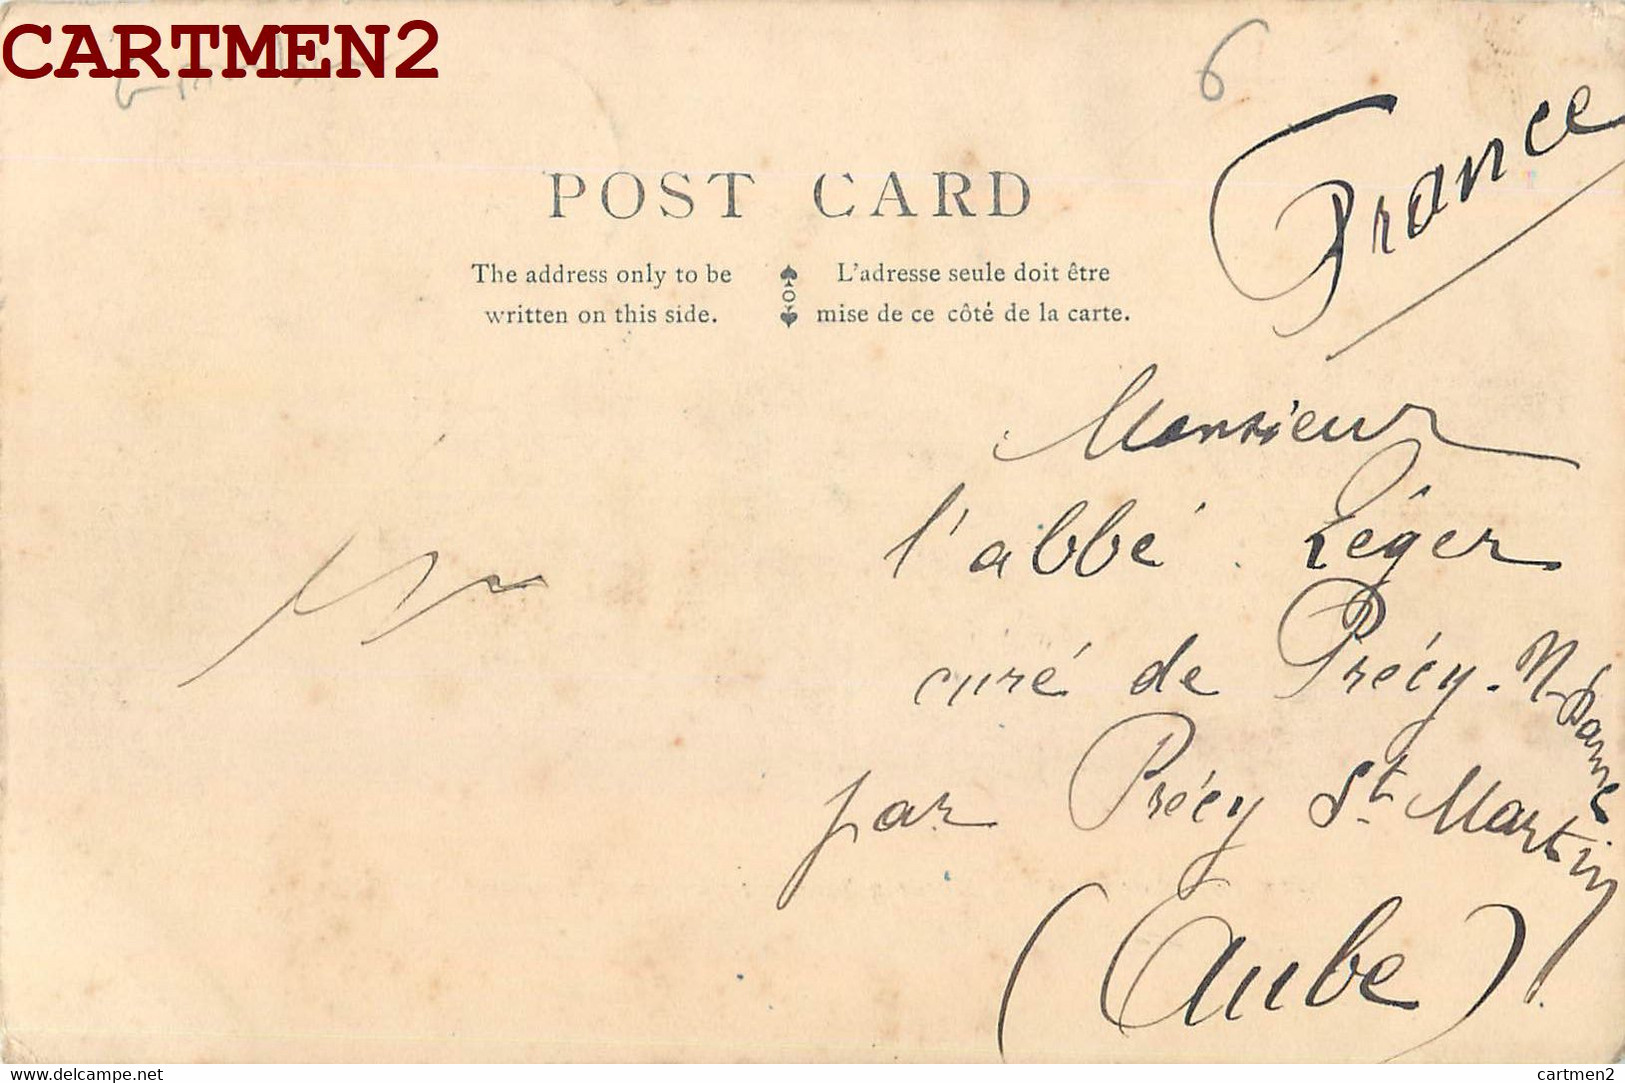 CARTMEN2
6
France
POST CARD
The address only to be
written on this side.
L'adresse seule doit être
mise de ce côté de la carte.
Monsieur
l'abbé Léger
curé de Précy-N-Dame
par Précy St Martin
(Aube)
www.delcampe.net
cartmen2